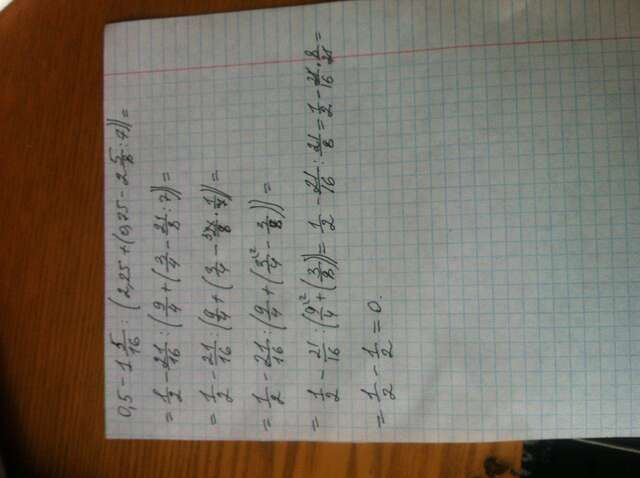 0,5 - 1 5/16 : (2,25 + (0,75 - 2 5/8 : 7)) =
= 1/2 - 21/16 : (9/4 + (3/4 - 21/8 : 7)) =
= 1/2 - 21/16 : (9/4 + (3/4 - 21/8 · 1/7)) =
= 1/2 - 21/16 : (9/4 + (3\2/4 - 3/8)) =
= 1/2 - 21/16 : (9\2/4 + (3/8)) = 1/2 - 21/16 : 21/8 = 1/2 - 21/16 · 8/21 =
= 1/2 - 1/2 = 0.